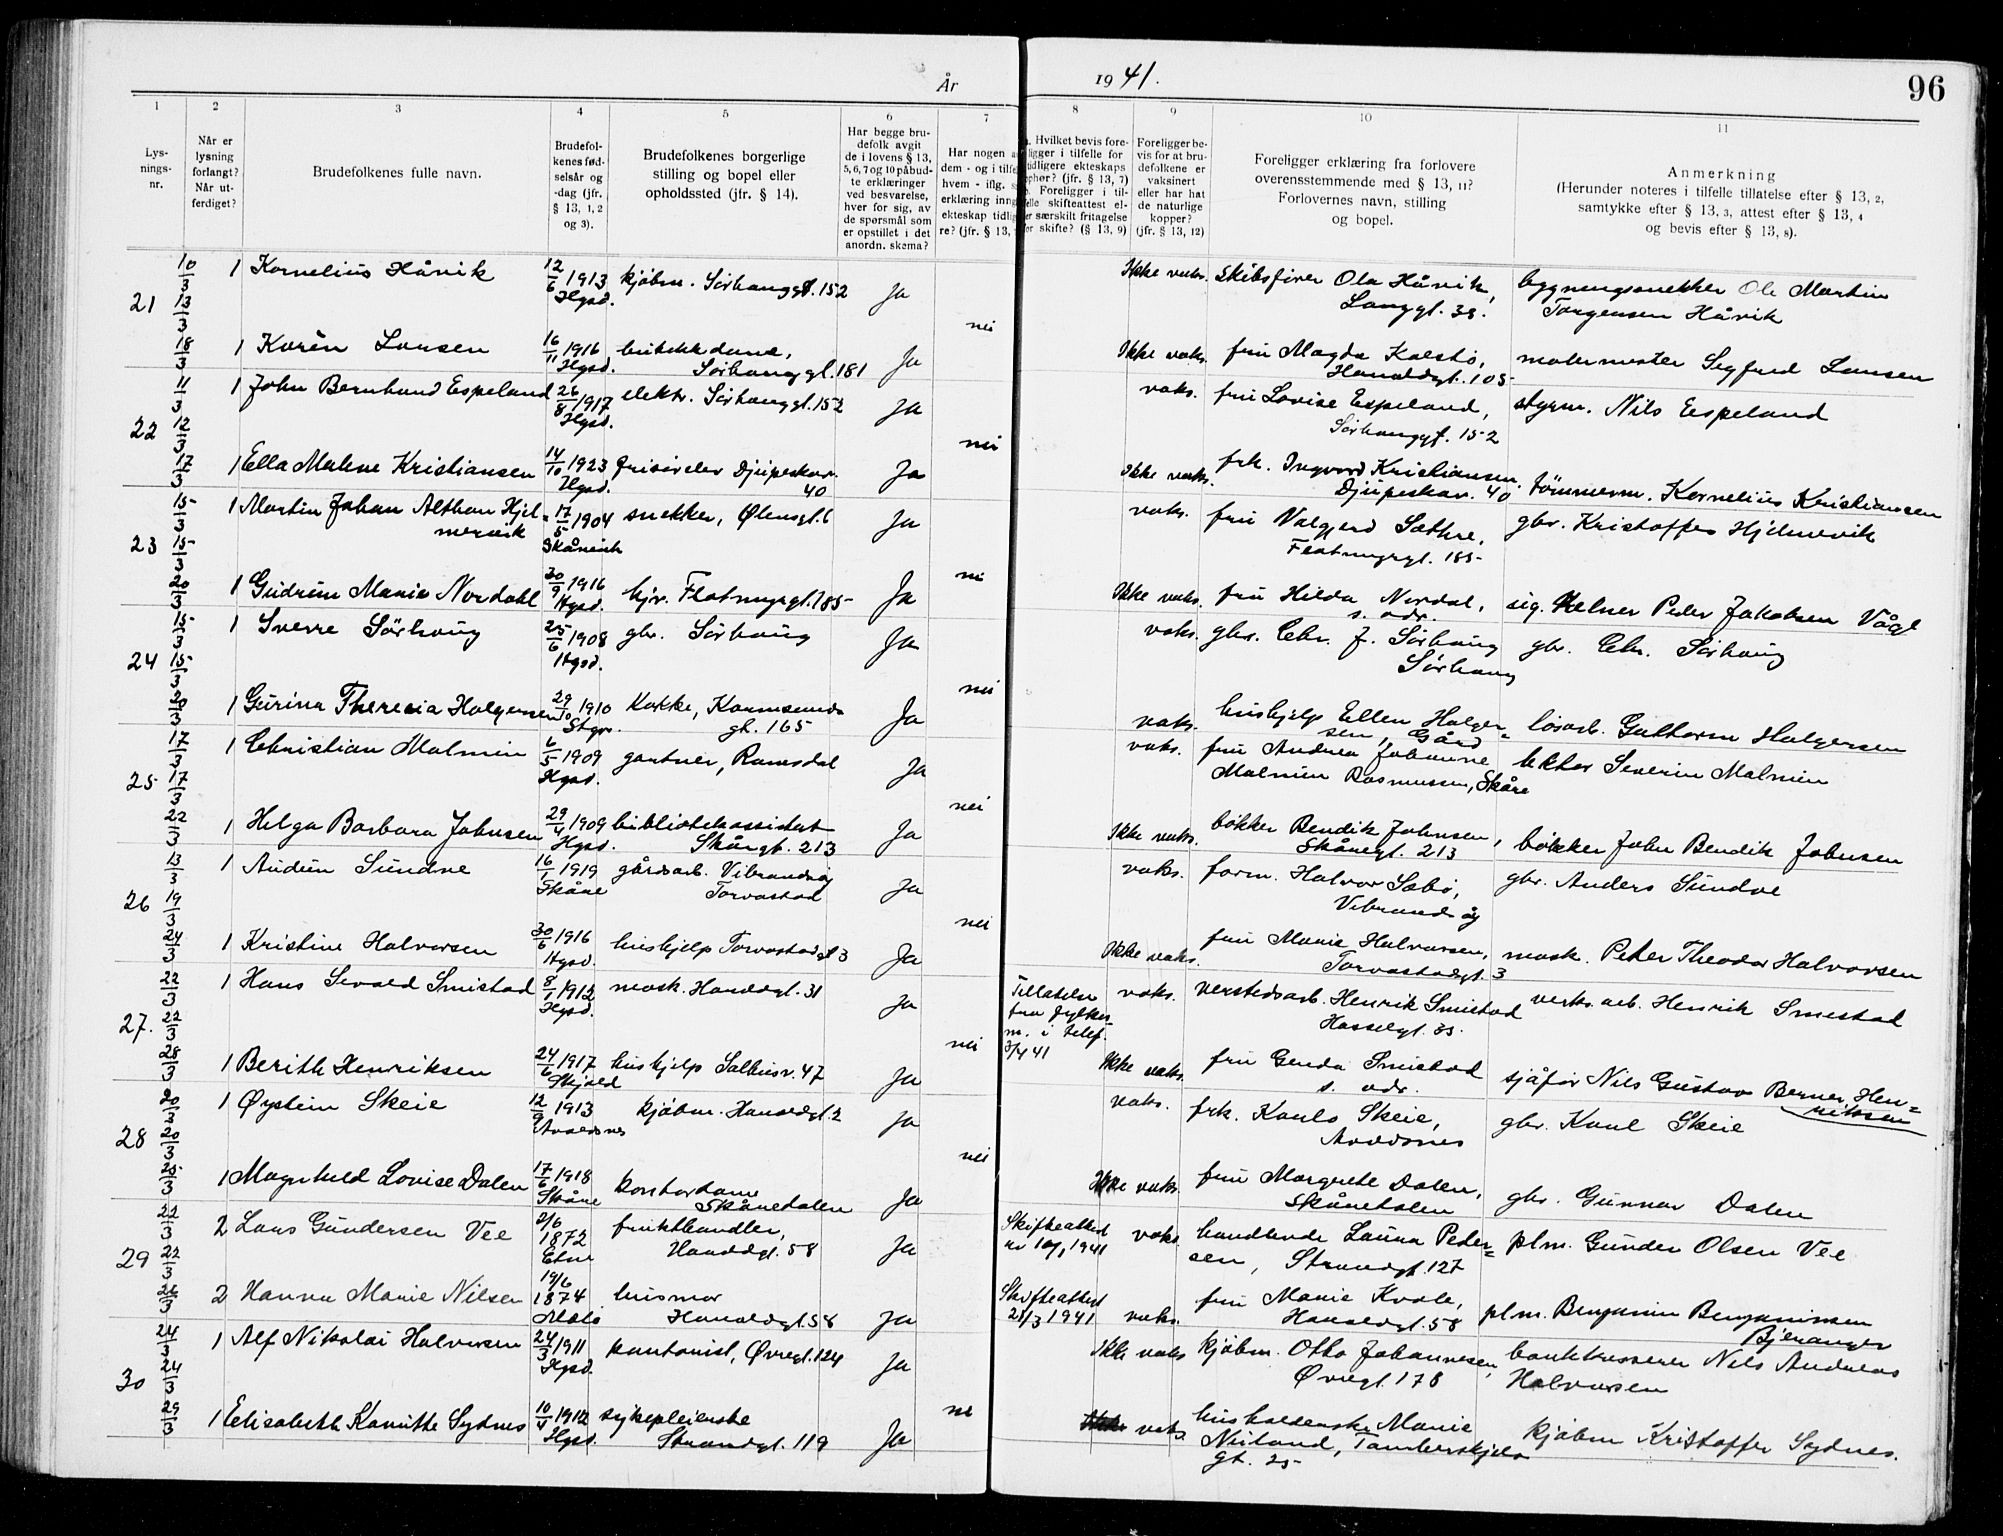 År 1941.
96
1 2 3 4 5 6 7 8 9 10 11
Lys-
nings-
nr.
Når er
lysning
forlangt?
Når ut-
ferdiget?
Brudefolkenes fulle navn.
Brudefol-
kenes fød-
selsår og
-dag (jfr.
§ 13, 1, 2
og 3).
Brudefolkenes borgerlige
stilling og bopel eller
opholdssted (jfr. § 14).
Har begge bru-
defolk avgit
de i lovens § 13,
5, 6, 7 og 10 påbud-
te erklæringer
ved besvarelse,
hver for sig, av
de spørsmål som
er opstillet i det
anordn. skema?
Har nogen
dem - og i tilf
hvem - iflg.
erklæring inng
ekteskap tidlig
re? (jfr. § 13,
Hvilket bevis fore-
ligger i tilfelle for
tidligere ekteskaps
ophør? (jfr. § 13, 7)
Foreligger i til-
felle skifteattest el-
er særskilt fritagelse
for skifte? (§ 13, 9)
Foreligger be-
vis for at bru-
defolkene er
vaksinert
eller har hat
de naturlige
kopper?
(jfr. § 13, 12)
Foreligger erklæring fra forlovere
overensstemmende med § 13, 11?
Forlovernes navn, stilling
og bopel.
Anmerkning
(Herunder noteres i tilfelle tillatelse efter § 13, 2,
samtykke efter § 13, 3, attest efter § 13, 4
og bevis efter § 13, 8).
21 10/3 13/3 18/3
1 Kornelius Håvik 12/6 1913 Hgsd. kjøbm. Sørhauggt. 152 Ja Ikke vaks. skibsfører Ola Håvik, Langgt. 38. bygningssnekker Ole Martin
Torgensen Håvik
nei
1 Karen Lausen 16/11 1916 Hgsd. butikkdame, Sørhauggt. 181 Ja Ikke vaks. fru Magda Kalstø, Haraldsgt. 105 malermester Sigfred Lausen
22 11/3 12/3 17/3
1 John Bernhard Espeland 26/8 1917 Hgsd. elektr. Sørhauggt. 152 Ja vaks. fru Lovise Espeland, Sørhauggt. 152 styrm. Nils Espeland
nei
1 Ella Malene Kristiansen 14/10 1923 Hgsd. frisørelev Djupaskar. 40 Ja Ikke vaks. frk. Ingvord Kristiansen, Djupaskar. 40 tømmerm. Kornelius Kristiansen
23 15/3 15/3 20/3
1 Martin Johan Althon Hjel-
mervik 17/5 1904 Skånevik snekker, Ølensgt. 6 Ja vaks. fru Valgerd Sæthre, Flotmyrgt. 185 gbr. Kristoffer Hjelmervik
nei
1 Gudrun Marie Nordahl 30/9 1916 Hgsd. hjv. Flotmyrgt. 185 Ja Ikke vaks. fru Hilda Nordal, s. adr. sig. Kelner Peder Jakobsen Våge
24 15/3 15/3 20/3
1 Sverre Sørhaug 25/6 1908 Hgsd. gbr. Sørhaug Ja vaks. gbr. Chr. J. Sørhaug Sørhaug gbr. Chr. Sørhaug
nei
1 Gurina Theresia Holgersen 29/10 1910 Stgr. kokke, Karmsunds
gt. 165 Ja vaks. hushjelp Ellen Holger-
sen, Gård løsarb. Guttorm Holgersen
25 17/3 17/3 22/3
1 Christian Malmin 6/5 1909 Hgsd. gartner, Ramsdal Ja vaks. fru Andrea Johanne
Malmin Rasmussen, Skåre lektor Severin Malmin
nei
1 Helga Barbara Johnsen 29/4 1909 Hgsd. bibliotekassistent Skåregt. 213 Ja Ikke vaks. bøkker Bendik Johnsen, Skåregt. 213 bøkker John Bendik Johnsen
26 13/3 19/3 24/3
1 Audun Sundve 16/1 1919 Skåre gårdsarb. Vibrandsøy Torvastad Ja vaks. form. Halvor Sæbø, Vibrandsøy gbr. Anders Sundve
nei
1 Kristine Halvorsen 30/6 1916 Hgsd. hushjelp Torvastadgt. 3 Ja Ikke vaks. fru Marie Halvorsen, Torvastadgt. 3 mask. Peter Theodor Halvorsen
27. 22/3 22/3 28/3
1 Hans Sevald Smistad 8/1 1912 Hgsd. mask. Haraldsgt. 31 Ja Tillatelse
fra fylkes-
m. i telef.
3/4 41 vaks. verkstedsarb. Henrik Smistad Hasselgt. 33. verks. arb. Henrik Smestad
nei
1 Berith Henriksen 24/6 1917 Skjold hushjelp Salhusv. 47 Ja Ikke vaks. fru Gerda Smistad s. adr. sjåfør Nils Gustav Berner Hen-
riksen
28 20/3 20/3 25/3
1 Øystein Skeie 12/9 1913 Avaldsnes kjøbm. Haraldsgt. 2 Ja vaks. frk. Karla Skeie, Avaldsnes gbr. Karl Skeie
nei
1 Magnhild Lovise Dalen 17/6 1918 Skåre kontordame Skåredalen Ja Ikke vaks. fru Margrete Dalen, Skåredalen gbr. Gunnar Dalen
29 22/3 22/3 26/3
2 Lars Gundersen Vee 2/6 1872 Etne frukthandler, Haraldsgt. 58 Ja Skifteattest
av 10/1 1941 vaks. handlende Laura Peder-
sen, Strandgt. 127 plm. Gunder Olsen Vee
2 Hanna Marie Nilsen 19/6 1874 husmor Haraldsgt. 58 Ja Skifteattest
21/3 1941 vaks. fru Marie Kvale, Haraldsgt. 58 plm. Benjamin Benjaminsen
Bjeranger
30 24/3 24/3 29/3
1 Alf Nikolai Halvorsen 24/3 1911 Hgsd. kontorist, Øvregt. 124 Ja Ikke vaks kjøbm. Otto Johannesen, Øvregt. 178 bankkasserer Nils Andreas
Halvorsen
nei
1 Elisabeth Kamitte Sydnes 10/4 1912 Hgsd. sykepleierske Strandgt. 119 Ja vaks. husholderske Marie
Neiland, Tamberskjelv
gt. 25 kjøbm Kristoffer Sydnes.